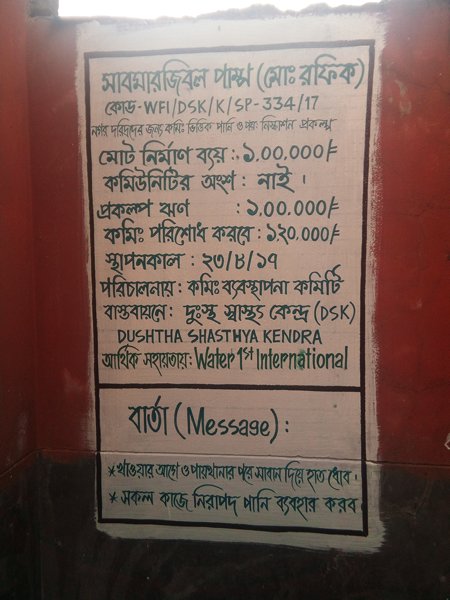 সাবমারজিবল পাম্প (মোঃ রফিক)
কোড-WFI/DSK/K/SP-334/17
নগর দরিদ্রদের জন্য কমিঃ ভিত্তিক পানি ও পয়ঃ নিষ্কাশন প্রকল্প
মোট নির্মাণ ব্যয় : ১.00,000/=
কমিউনিটির অংশ : নাই ।
প্রকল্প ঋণ : ১,00,000/=
কমিঃ পরিশোধ করবে : ১২0,000/=
স্থাপনকাল : ২৩/৮/১৭
পরিচালনায় : কমিঃ ব্যবস্থাপনা কমিটি
বাস্তবায়নে : দুঃস্থ স্বাস্থ্য কেন্দ্র (DSK)
DUSHTHA SHASTHYA KENDRA
আর্থিক সহায়তায় : Water 1st International
বার্তা (Message) :
* খাওয়ার আগে ও পায়খানার পরে সাবান দিয়ে হাত ধোব ।
* সকল কাজে নিরাপদ পানি ব্যবহার করব ।